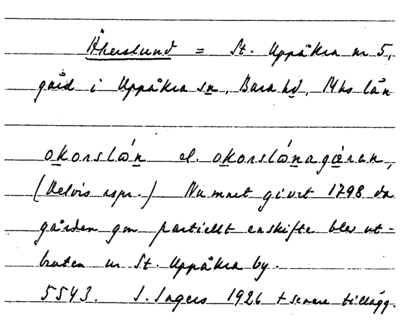 Åkerslund = St. Uppåkra nr 5,
gård i Uppåkra sn, Bara hd, Mhs län
okorslon el. okorslonagåran,
(delvis rspr.) Namnet givet 1798 då
gården gm partiellt enskifte blev ut-
bruten ur St. Uppåkra by.
5543. I. Ingers 1926 + senare tillägg.